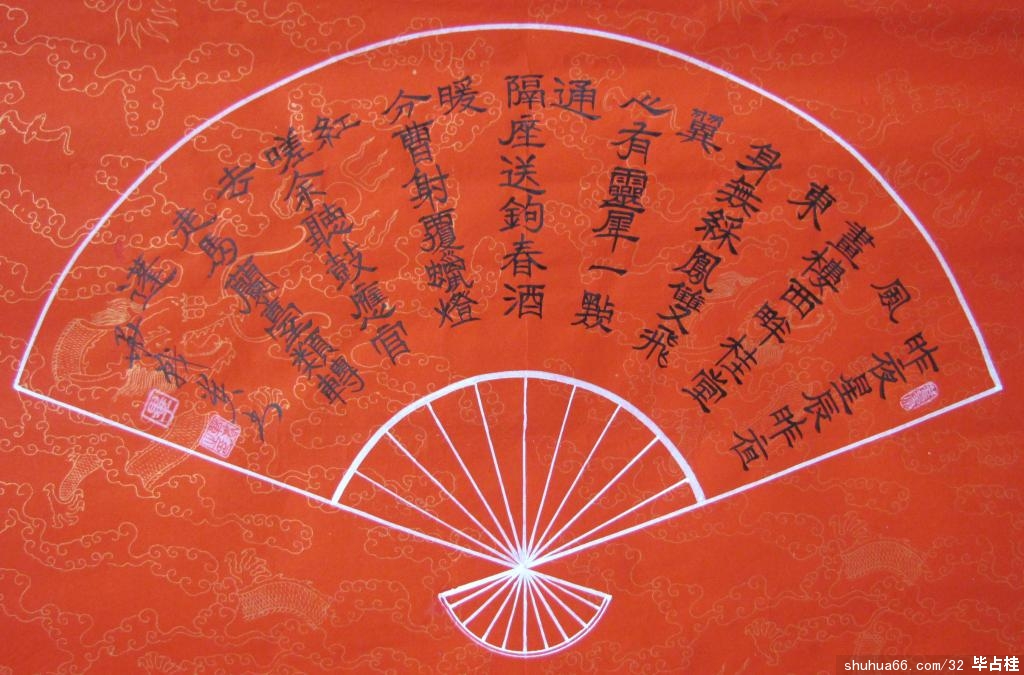 昨夜星辰昨夜
風
畫樓西畔桂堂
東
身無綵鳳雙飛
翼
心有靈犀一點
通
隔座送鉤春酒
暖
分曹射覆蠟燈
紅
嗟余聽鼓應官
去
走馬蘭臺類轉
蓬
shuhua66.com/32 毕占桂